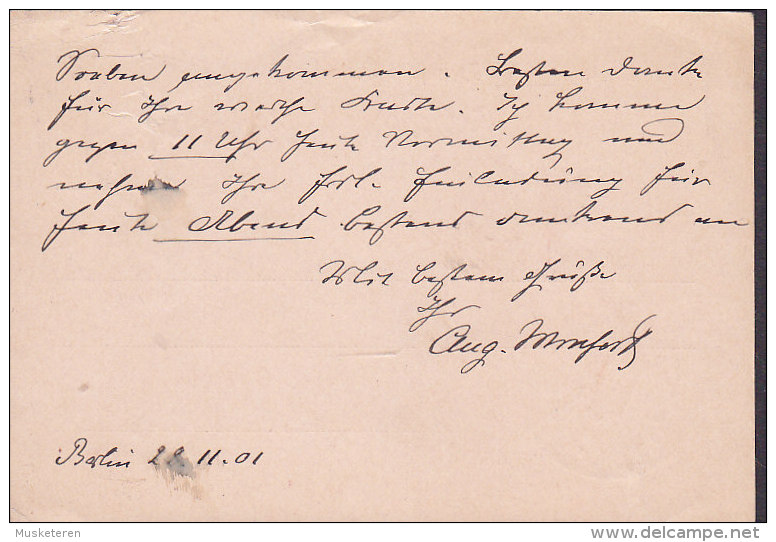 Soeben angekommen. Besten Dank
für Ihre werthe Karte. Ich komme
gegen 11 Uhr heute Vormittag und
nehme Ihre frdl. Einladung für
heute Abend bestens dankend an
Mit bestem Grüße
Ihr
Aug.
Berlin 11.01
Musketeren
delcampe.net